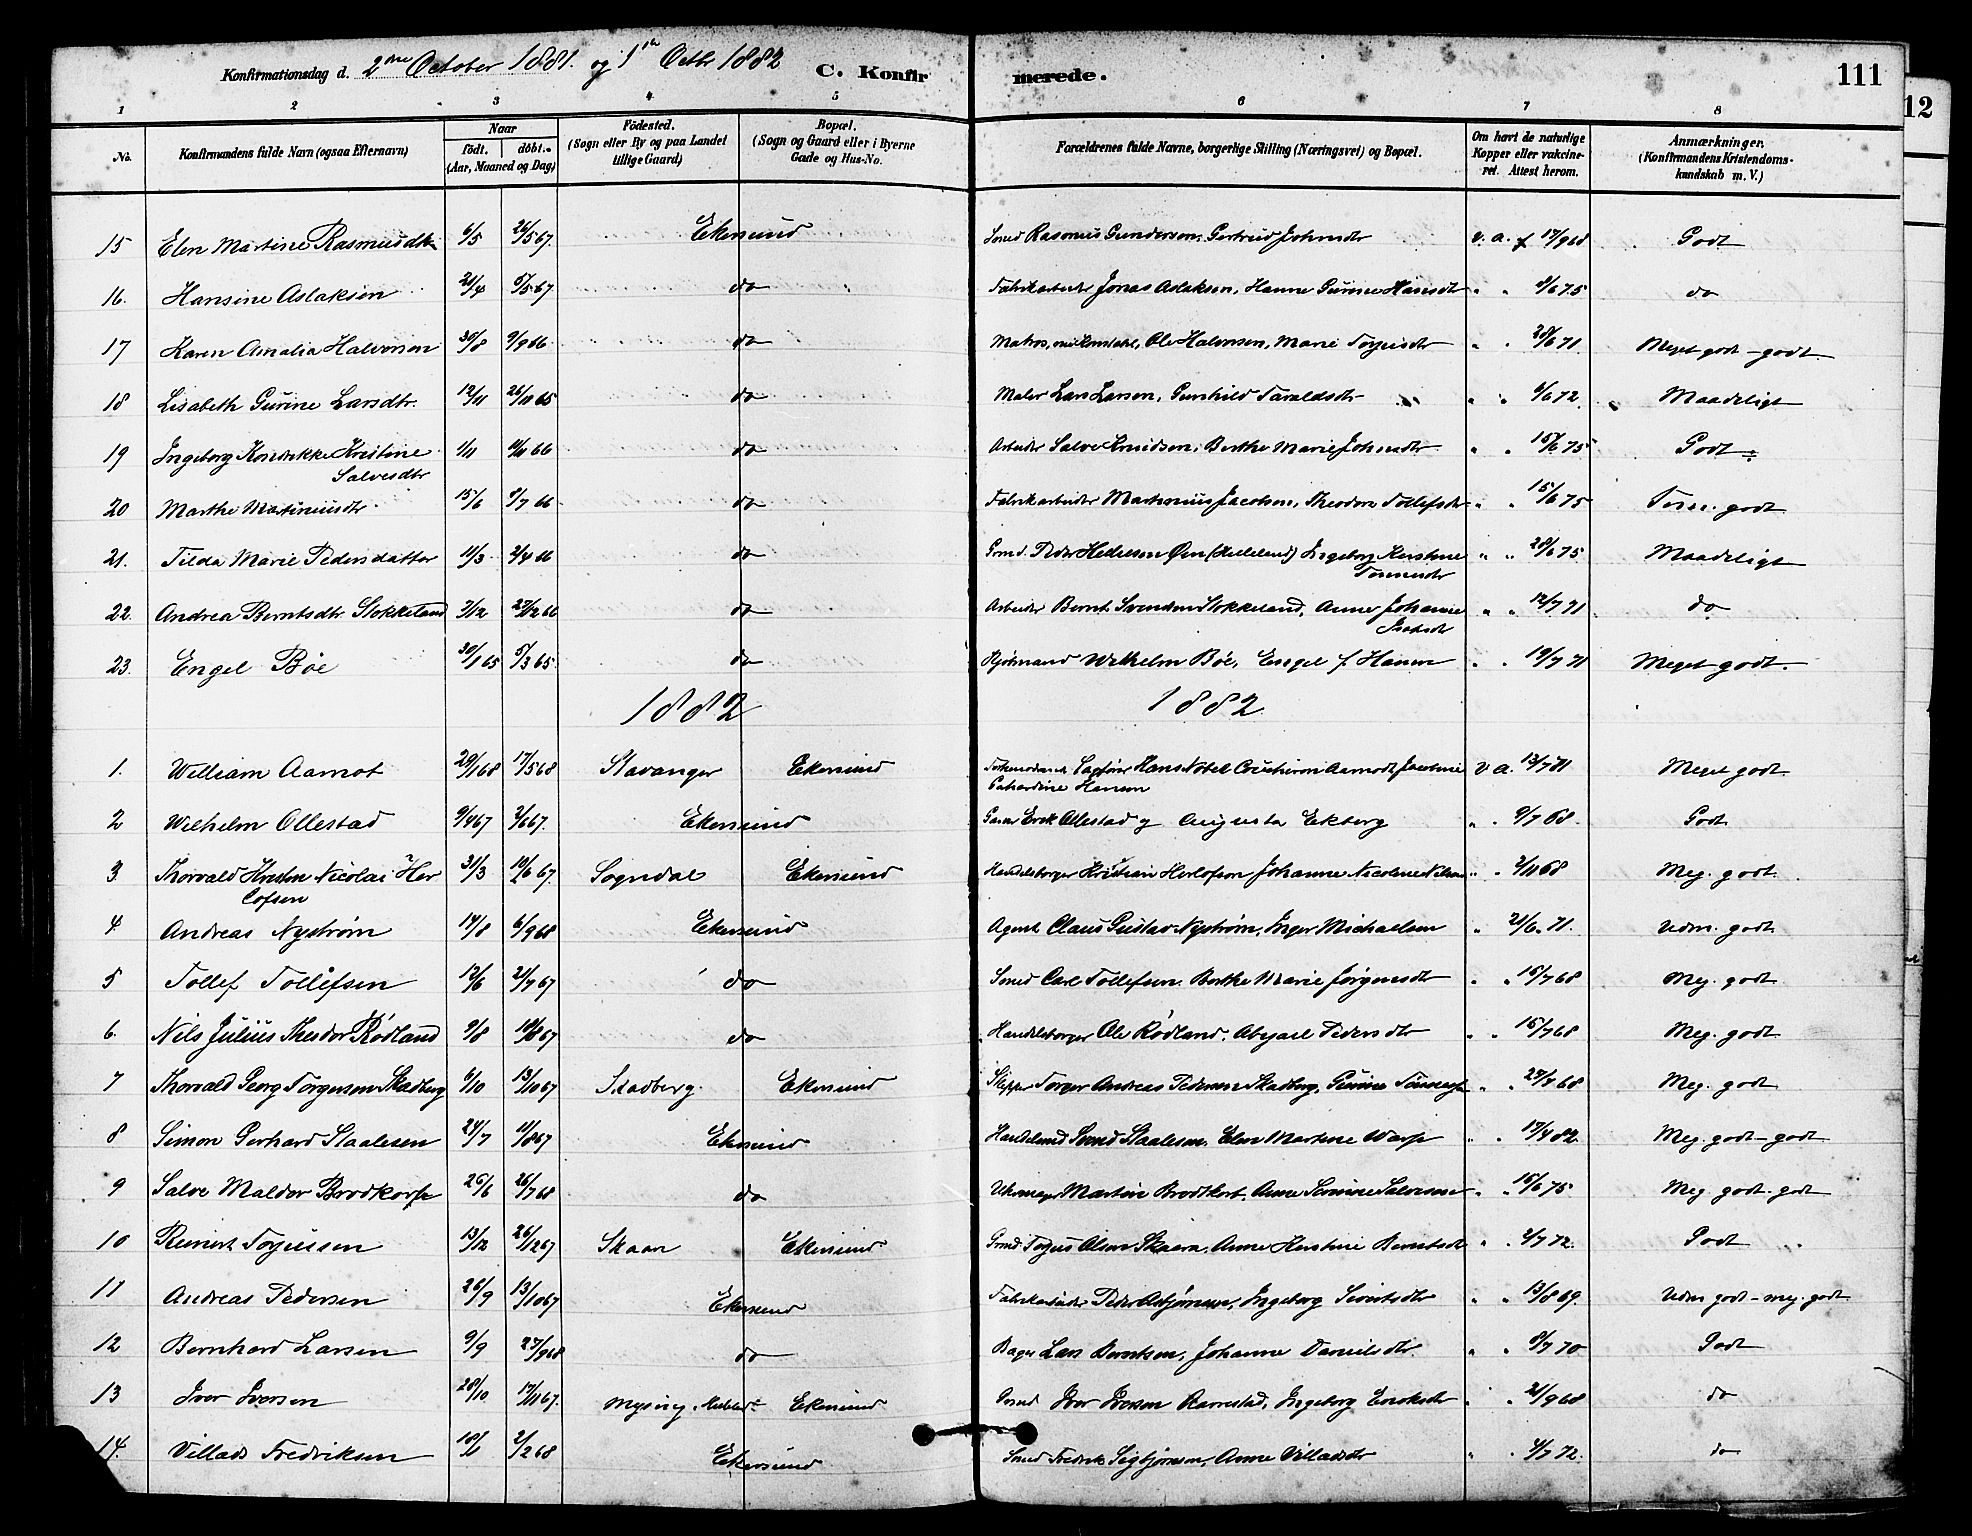 Konfirmationsdag d. 2den October 1881. og 1ste Octbr 1882 C. Konfir merede. 111
12
1 2 3 4 5 6 7 8
No. Konfirmandens fulde Navn (ogsaa Efternavn) Naar födt. döbt. (Aar, Maaned og Dag) Födested. (Sogn eller By og paa Landet tillige Gaard) Bopæl. (Sogn og Gaard eller i Byerne Gade og Hus-No. Forældrenes fulde Navne, borgerlige Stilling (Næringsvei) og Bopæl. Om havt de naturlige Kopper eller vakcineret. Attest herom. Anmærkninger. (Konfirmandens Kristendomskundskab m. V.)
15 Elen Martine Rasmusdtr 6/5 26/5 67. Ekersund Smed Rasmus Gunderson, Gertrud Johnsdtr v. a. f 17/9 68 Godt
16. Hansine Aslaksen 21/4 5/5 67 do Fabrikarbeider Jonas Aslaksen, Hanne Gurine Hansdtr " " 9/6 75 do
17 Karen Amalia Halvorsen 30/8 9/9 66 do Matros, Ole Halvorsen, Marie Torjusdtr " " 28/6 71. Meget godt - godt
18 Lisabeth Gurine Larsdtr. 12/11 26/11 65 do Maler Lars Larsen, Gunhild Taraldsdtr " " 6/6 72. Maadeligt
19 Ingeborg Kristine Salvesdtr 1/11 11/11 66 do Arbeider Salve Knudsen, Berthe Marie Johnsdtr " " 15/6 75 Godt
20 Marthe Martinusdtr 15/6 8/7 66 do Fabrikarbeider Martinius Jacobsen, Theodora Tollefsdtr " " 15/6 75 Tem. godt
21. Tilda Marie Pedersdatter 11/3 2/4 66 do Gmd. Peder Hellesen Øen (Helleland) Ingeborg Kirstine Tønnesdtr " " 28/6 75 Maadeligt
22. Andrea Berntsdtr Slokkeland 7/12 27/12 66 do Arbeider Bernt Svendsen Slokkeland, Anne Johanne Isaksdr " " 12/7 71 do
23. Engel Böe 30/1 65 5/3 65 do Kjöbmand Wilhelm Böe, Engel f. Hansen " " 19/7 71 Meget godt.
1882 1882
1. William Aamot 29/1 68 17/5 68 Stavanger Ekersund Hans Aamodt, Jacobine Cathardine Hansen v a. 13/7 81 Meget godt
2 Wilhelm Ollestad 9/4 67 2/6 67. Ekersund Garver Erik Ollestad og Augusta Ekberg " " 9/7 68. Godt
3. Thorvald Nicolai Herlofsen 31/3 10/6 67. Sogndal Ekersund Handelsborger Kristian Herlofson Johanne Nicoline Nilsen " " 2/11 68 Meg. godt
4. Andreas Nyström 14/8 6/9 68 Ekersund Agent Claus Gustav Nyström, Inger Michaelsen " 21/6. 71. Udm. godt
5 Tollef Tollefsen 12/6 21/7 67 do Smed Carl Tollefsen. Berthe Marie Jörgensdtr " " 15/7 68 Meg. godt
6. Nils Julius Theodor Rödland 9/8 18/8 67 do Handelsborger Ole Rödland. Abigael Pedersdtr " " 15/7 68 Meg. godt
7 Thorvald Georg Torgersen Skadberg 6/10 13/10 67 Skadberg. Ekersund Skipper Torger Andreas Pedersen Skadberg, Gurine Tönnesen " " 27/7 68 Meg. godt
8 Simon Gerhard Staalesen 24/7 11/8 67 Ekersund Handelsmd Staalesen. Elen Martine " " 17/4 82 Meg. godt - godt
9 Salve Maldor Brodkorp 25/6 26/7 68 do Uhrmager Martin Brodtkorb. Anne Salvesen " " 15/6 75 Meg. godt. godt
10 Reinert Torjussen 13/12 26/12 67 Skaar Ekersund Grmd. Torjus Olsen Skaara, Anne Kirstine Berntsdtr " . 4/7 72. Godt
11 Andreas Pedersen 26/9 13/10 67 Ekersund Fabrikarbeider Peder Asbjörnsen, Ingeborg Sivertsdtr " " 13/8 69. Udm godt - meg. godt
12 Bernhard Larsen 9/9 27/9 68 do Bager Lars Berntsen, Johanne Danielsdtr. " " 8/7 70 Godt
13 Iver Iversen 28/10 17/11 67. Mysing, Ekersund Gmd Iver Iversen Ravnestad, Ingeborg Enoksdtr " " 21/9 68 do
14. Villads Fredriksen 10/1 2/2 68 Ekersund Smed Fredrik Sigbjörnsen, Anne Villadsdtr " " 4/7 72. do